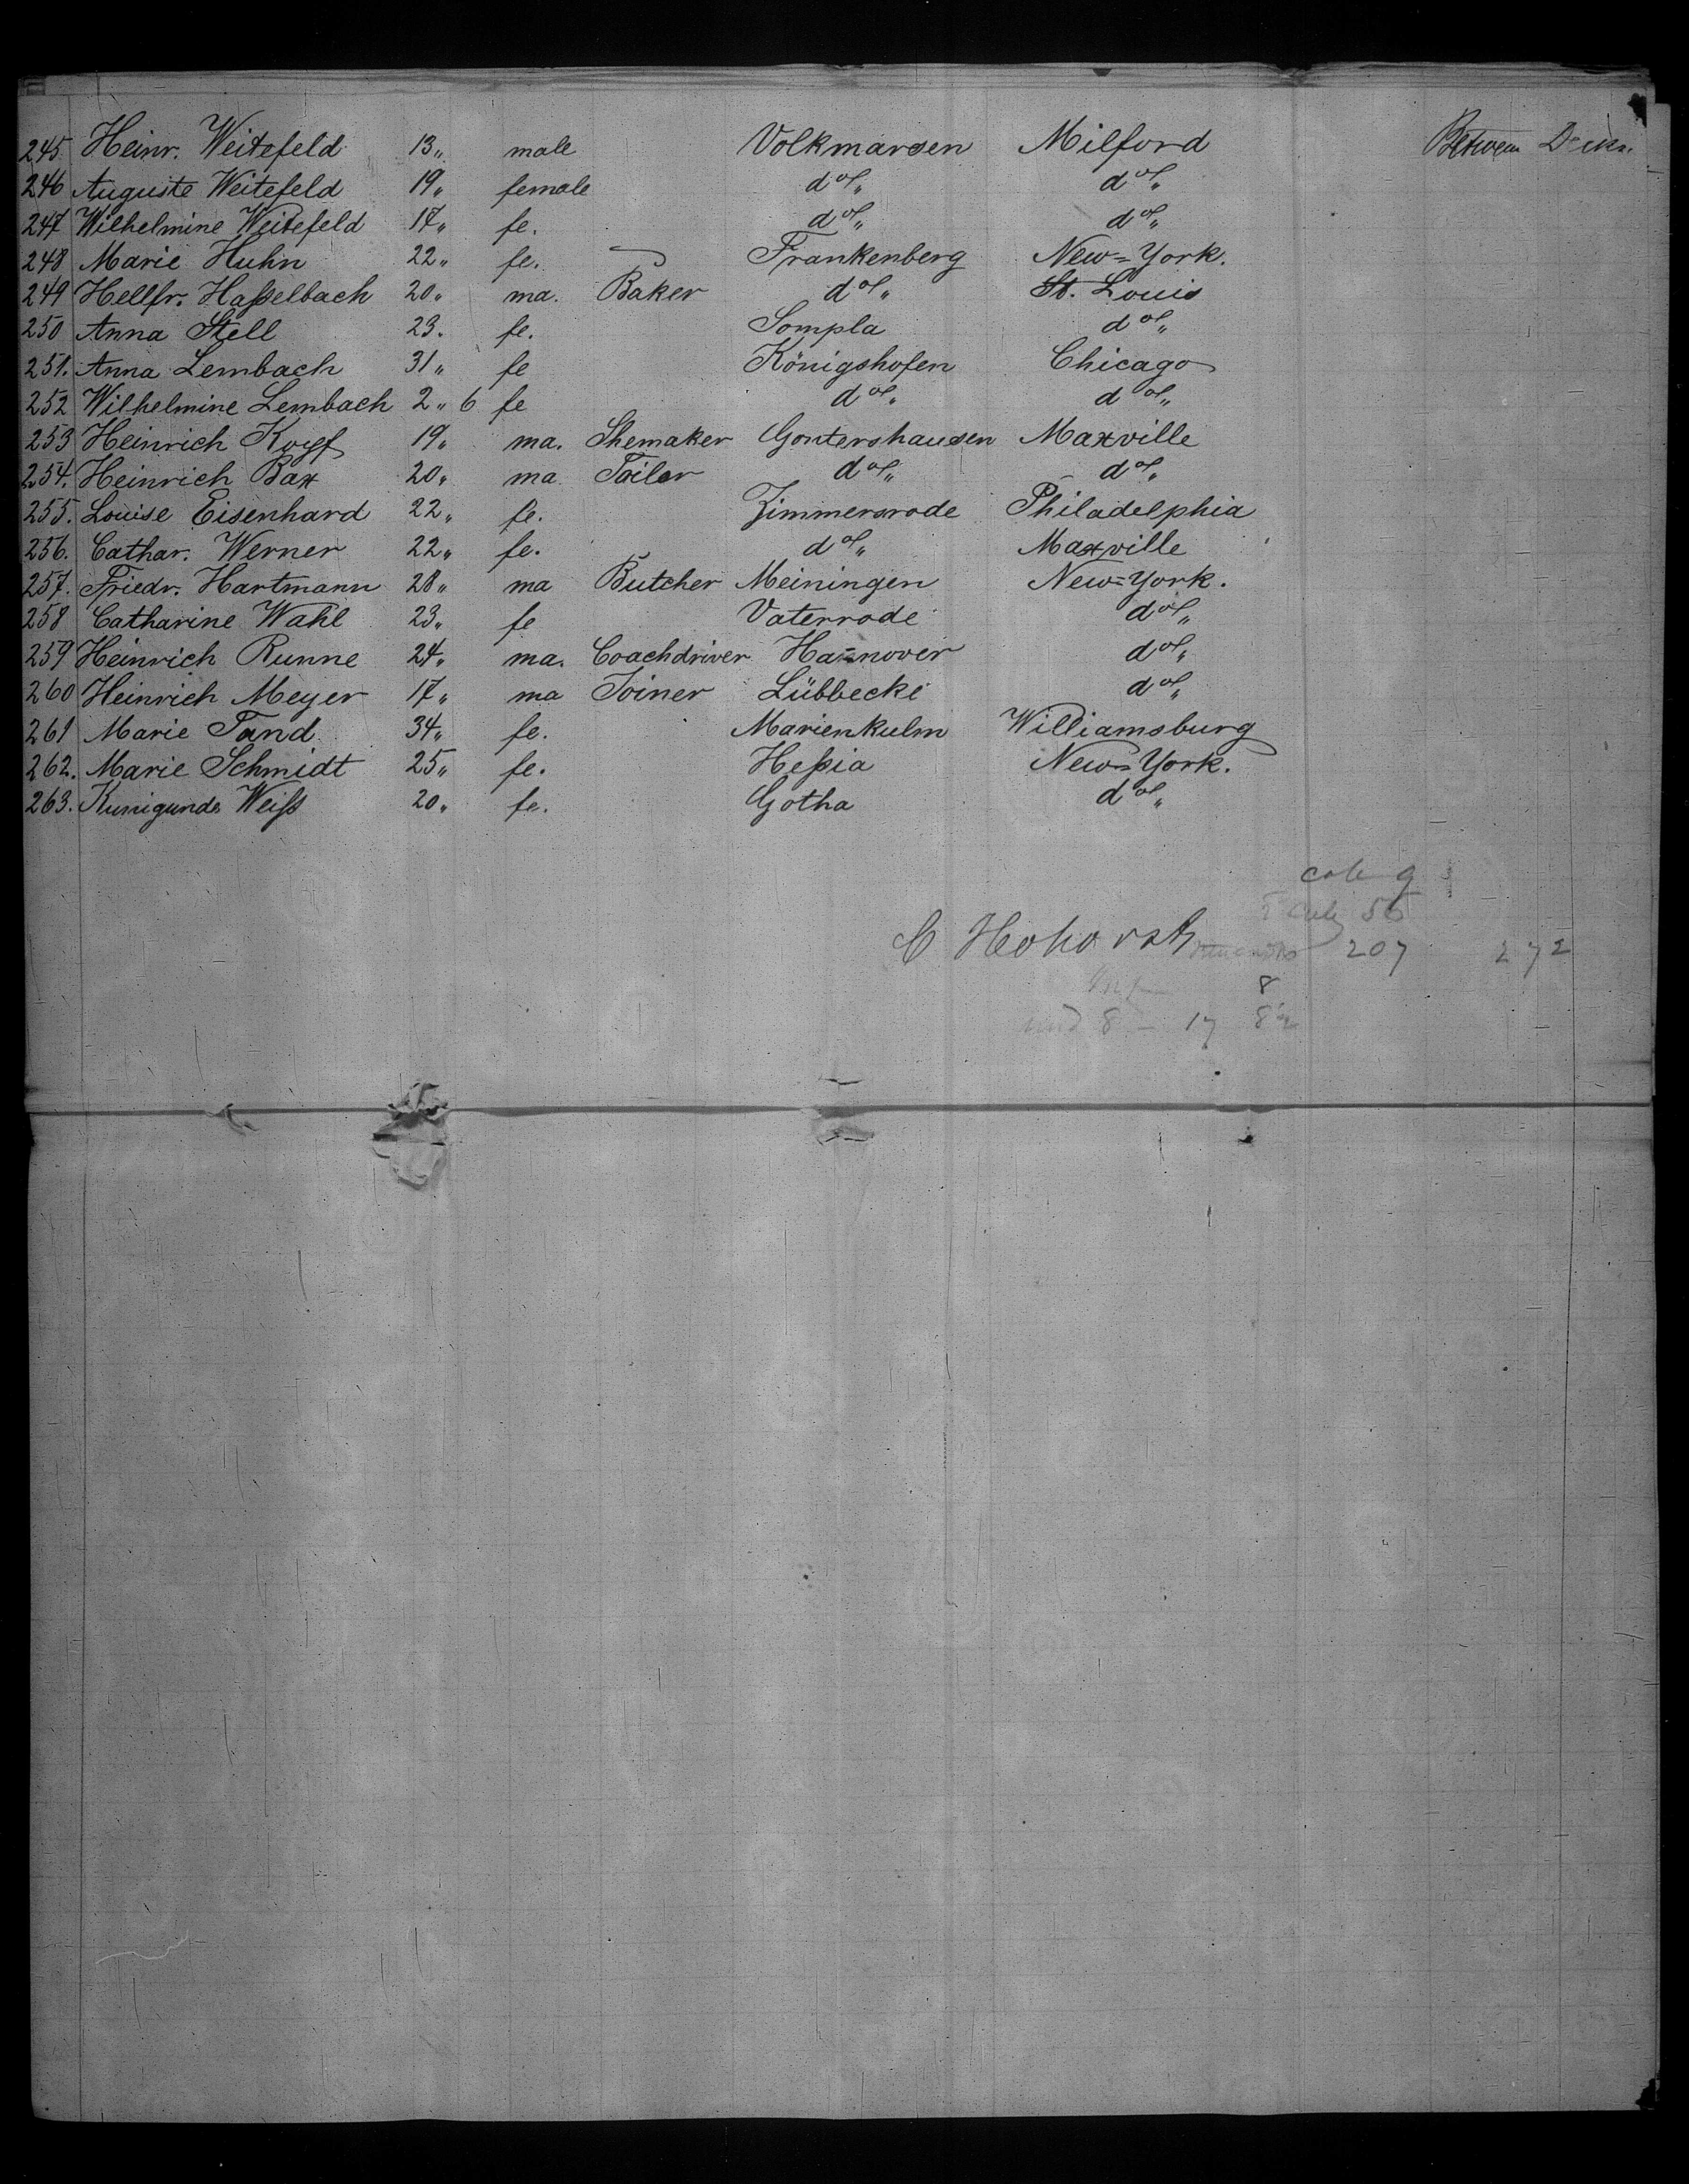 245. Heinr. Weitefeld 13 „ male Volkmarsen Milford Between Decks.
246 Auguste Weitefeld 19 „ female do „ do „
247 Wilhelmine Weitefeld 17 „ fe. do „ do „
248 Marie Huhn 22 „ fe. Frankenberg New=York.
249 Hellfr. Haßelbach 20 „ ma. Baker do „ St. Louis
250 Anna Stell 23 „ fe. Sompla do „
251. Anna Lembach 31 „ fe Königshofen Chicago
252 Wilhelmine Lembach 2 „ 6 fe do „ do „
253 Heinrich 19 „ ma. Shemaker Gontershausen Maxville
254. Heinrich Bax 20 „ ma Tailer do „ do „
255. Louise Eisenhard 22 „ fe. Zimmersrode Philadelphia
256. Cathar. Werner 22 „ fe. do „ Maxville
257. Friedr. Hartmann 28 „ ma Butcher Meiningen New=York.
258 Catharine Wahl 23 „ fe Vaterrode do „
259 Heinrich Runne 24 „ ma. Coachdriver Hannover do „
260 Heinrich Meyer 17 „ ma Joiner Lübbecke do „
261 Marie Tand 34 „ fe. Marienkulm Williamsburg
262. Marie Schmidt 25 „ fe. Heßia New=York.
263. Kunigunde Weiß 20 „ fe. Gotha do „
9
56
207 272
8
8 – 17